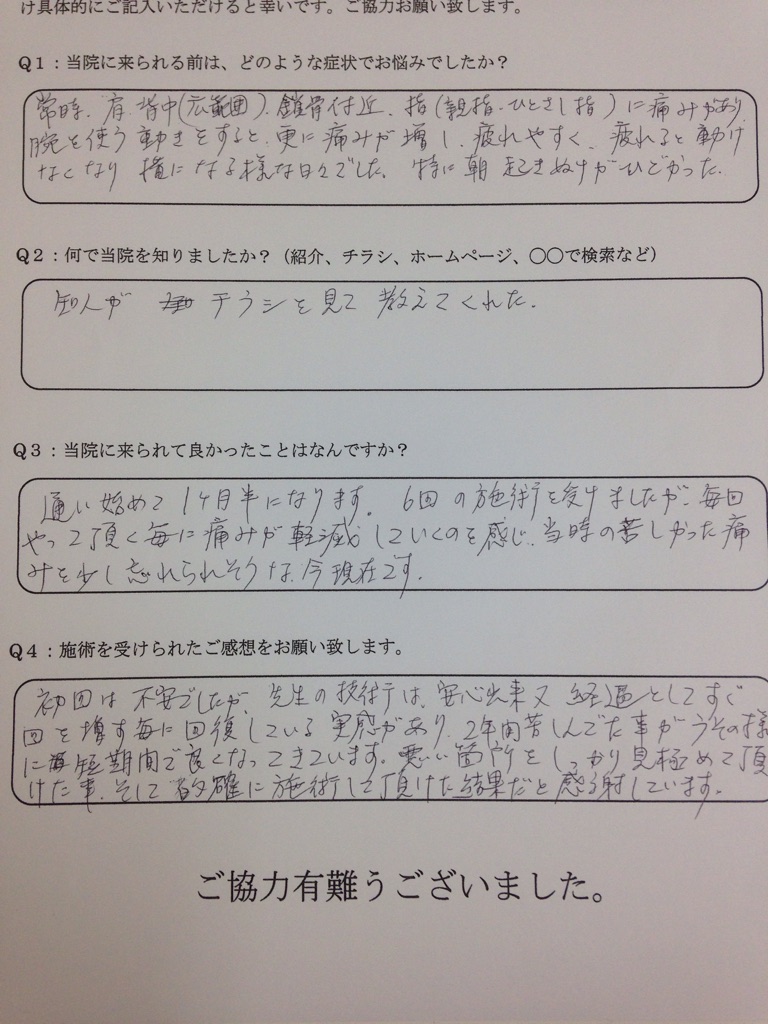 け具体的にご記入いただけると幸いです。ご協力お願い致します。
Q1：当院に来られる前は、どのような症状でお悩みでしたか？
常時、肩、背中(広範囲)、鎖骨付近、指(親指・ひとさし指)に痛みがあり、
腕を使う動きをすると、更に痛みが増し、疲れやすく、疲れると動け
なくなり 横になる様な日々でした。 特に朝 起きぬけがひどかった。
Q2：何で当院を知りましたか？（紹介、チラシ、ホームページ、〇〇で検索など）
知人が チラシを見て 教えてくれた。
Q3：当院に来られて良かったことはなんですか？
通い始めて 1ヶ月半になります。 6回の施術を受けましたが、毎回
やって頂く毎に痛みが軽減していくのを感じ、当時の苦しかった痛
みを少し忘れられそうな、今現在です。
Q4：施術を受けられたご感想をお願い致します。
初回は 不安でしたが、先生の技術は、安心出来又 経過としてすぐ
回を増す毎に回復している実感があり、2年間苦しんでた事がうその様
に短期間で良くなってきています。悪い箇所をしっかり見極めて頂
けた事、そして的確に施術して頂けた結果だと感謝しています。
ご協力有難うございました。